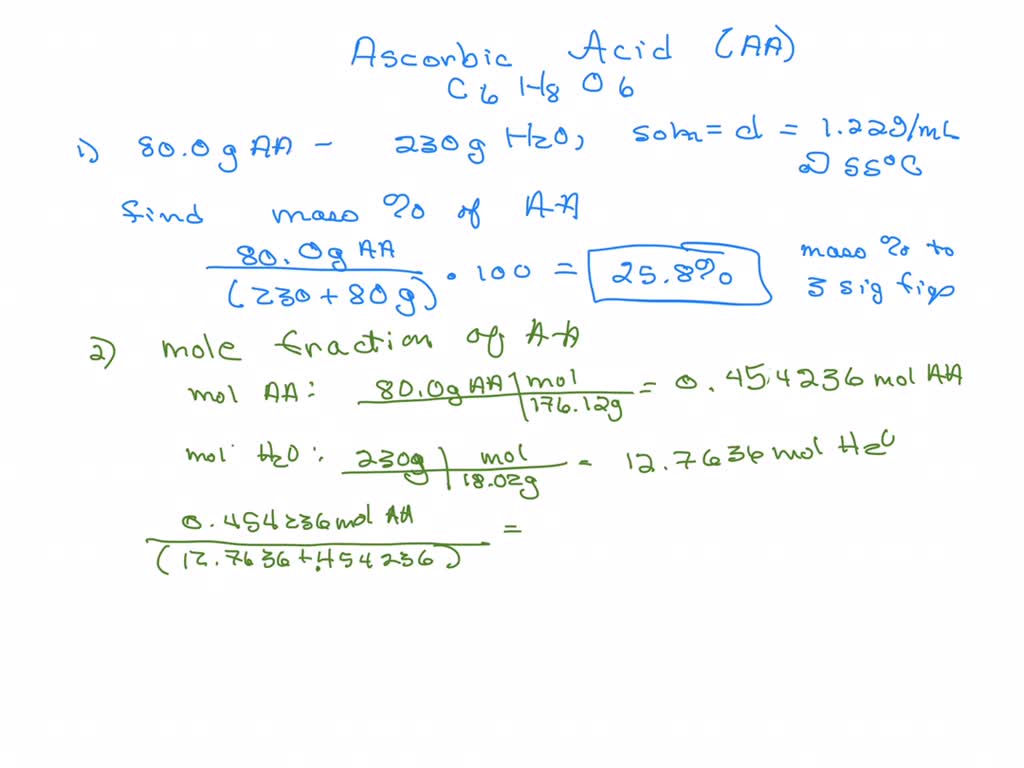 Ascorbic Acid (AA)
C6 H8 O6
1) 80.0g AA - 230g H2O, soln = d = 1.22g/mL
@ 55°C
find mass % of AA
80.0g AA / (230 + 80g) • 100 = 25.8% mass % to
3 sig figs
2) mole fraction of AA
mol AA: 80.0g AA | mol / 176.12g = 0.454236 mol AA
mol H2O: 230g | mol / 18.02g = 12.7636 mol H2O
0.454236 mol AA / (12.7636 + .454236) =